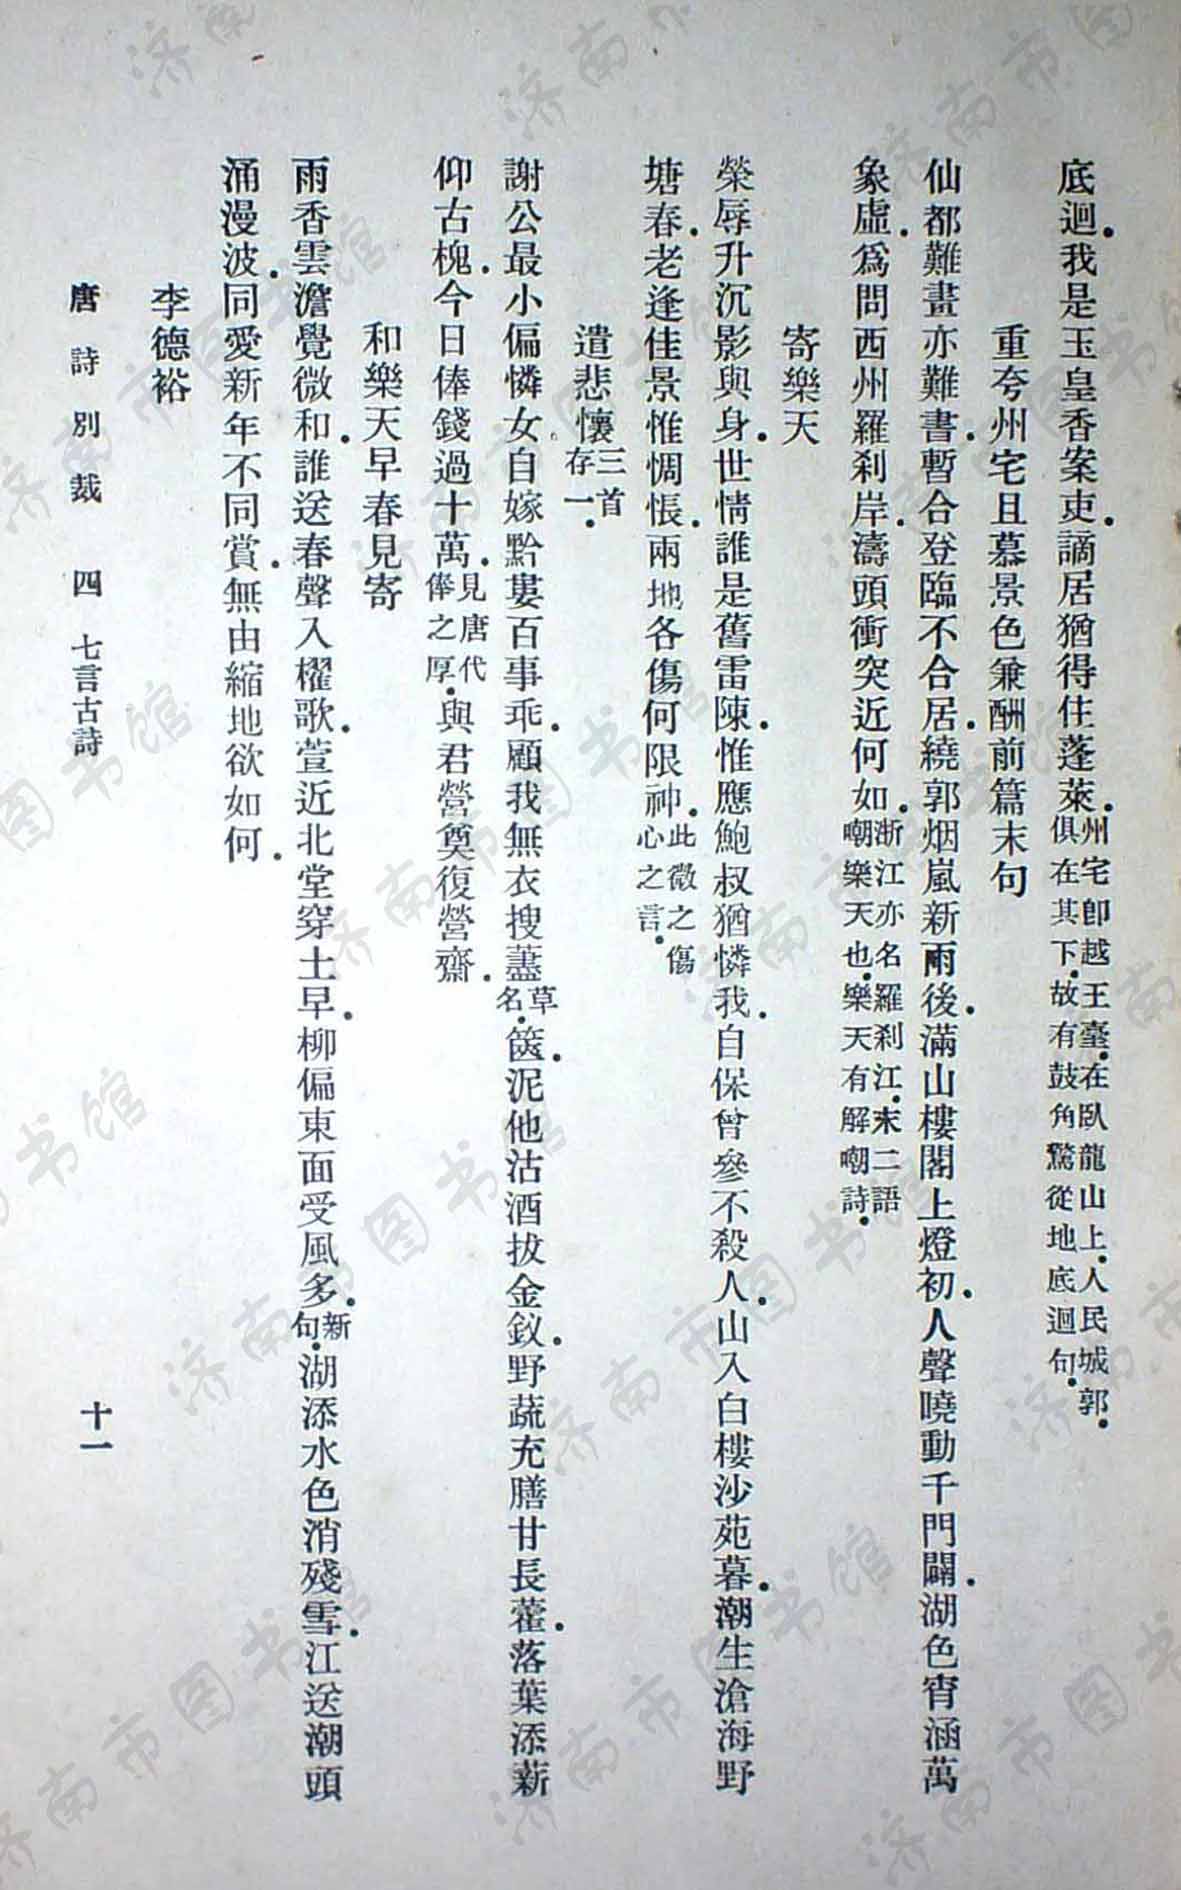 底迴．我是玉皇香案吏．謫居猶得住蓬萊．州宅卽越王臺．在臥龍山上．人民城郭．俱在其下．故有鼓角驚從地底迴句．
重夸州宅旦慕景色兼酬前篇末句
仙都難畫亦難書．暫合登臨不合居．繞郭烟嵐新雨後．滿山樓閣上燈初．人聲曉動千門闢．湖色宵涵萬
象虛．爲問西州羅刹岸．濤頭衝突近何如．浙江亦名羅刹江．末二語嘲樂天也．樂天有解嘲詩．
寄樂天
榮辱升沉影與身．世情誰是舊雷陳．惟應鮑叔猶憐我．自保曾參不殺人．山入白樓沙苑暮．潮生滄海野
塘春．老逢佳景惟惆悵．兩地各傷何限神．此微之傷心之言．
遣悲懷三首存一．
謝公最小偏憐女。自嫁黔婁百事乖．顧我無衣搜藎草名．篋．泥他沽酒拔金釵．野蔬充膳甘長藿．落葉添薪
仰古槐．今日俸錢過十萬．見唐代俸之厚．與君營奠復營齋．
和樂天早春見寄
雨香雲澹覺微和．誰送春聲入櫂歌．萱近北堂穿土早．柳偏東面受風多．新句．湖添水色消殘雪．江送潮頭
涌漫波．同愛新年不同賞．無由縮地欲如何．
李德裕
唐詩別裁 四 七言古詩 十一
济南市图书馆